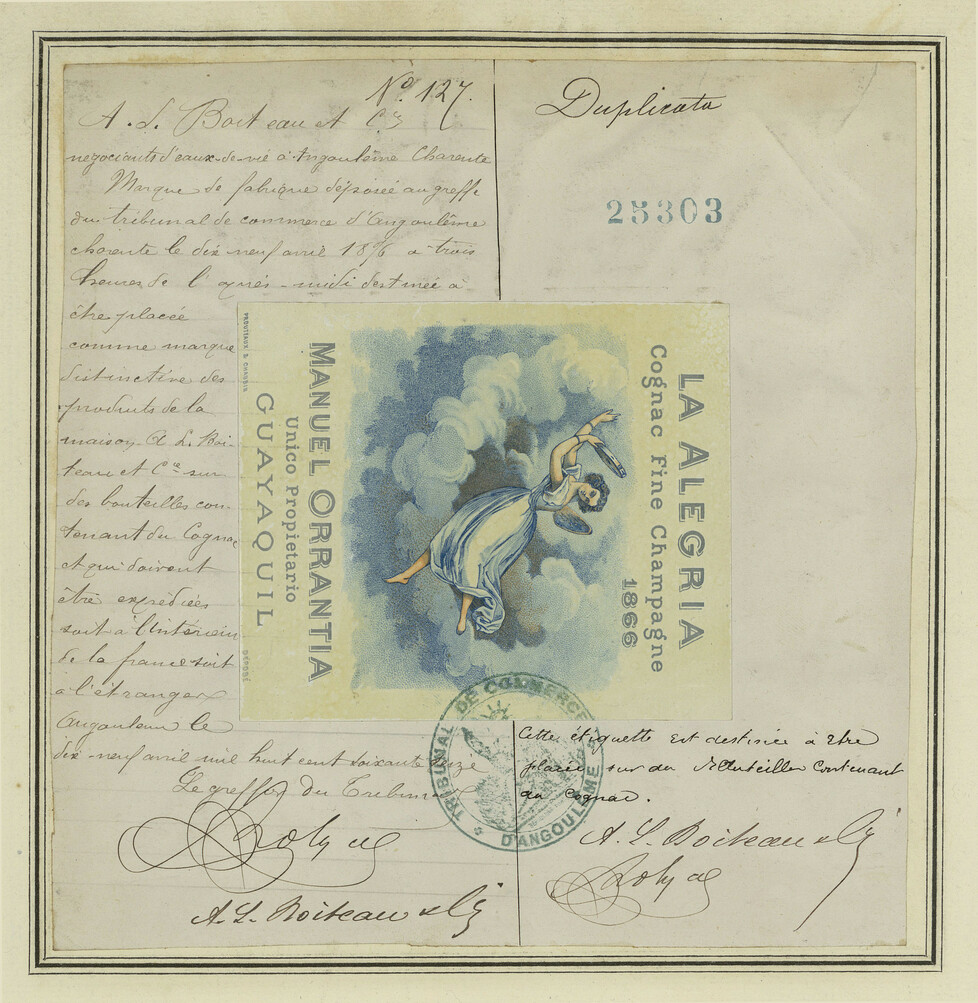 Nº. 127.
A. L. Boiteau et Cie
negociants d'eaux-de-vie à Angoulême Charente
Marque de fabrique déposée au greffe
du tribunal de commerce d'Angoulême
charente le dix neuf avril 1876 à trois
heures de l'après-midi destinée à
être placée
comme marque
distinctive des
produits de la
maison A L. Boi-
teau et Cie sur
des bouteilles con-
tenant du Cognac
et qui doivent
être expédiées
soit à l'intérieur
de la france soit
à l'étranger
Angoulême le
dix-neuf avril mil huit cent soixante seize
Le greffier du Tribunal
A. L. Boiteau & Cie
Duplicata
25303
LA ALEGRIA
Cognac Fine Champagne
1866
MANUEL ORRANTIA
Unico Propietario
GUAYAQUIL
DÉPOSÉ
TRIBUNAL DE COMMERCE
D'ANGOULEME
Cette étiquette est destinée à être
placée sur du Bouteilles contenant
du cognac.
A. L. Boiteau & Cie